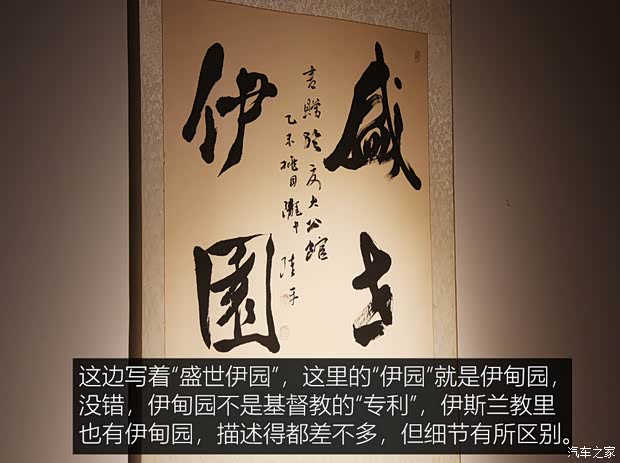 盛世
贈於友大公館
乙未
伊園
这边写着“盛世伊园”，这里的“伊园”就是伊甸园，
没错，伊甸园不是基督教的“专利”，伊斯兰教里
也有伊甸园，描述得都差不多，但细节有所区别。
汽车之家